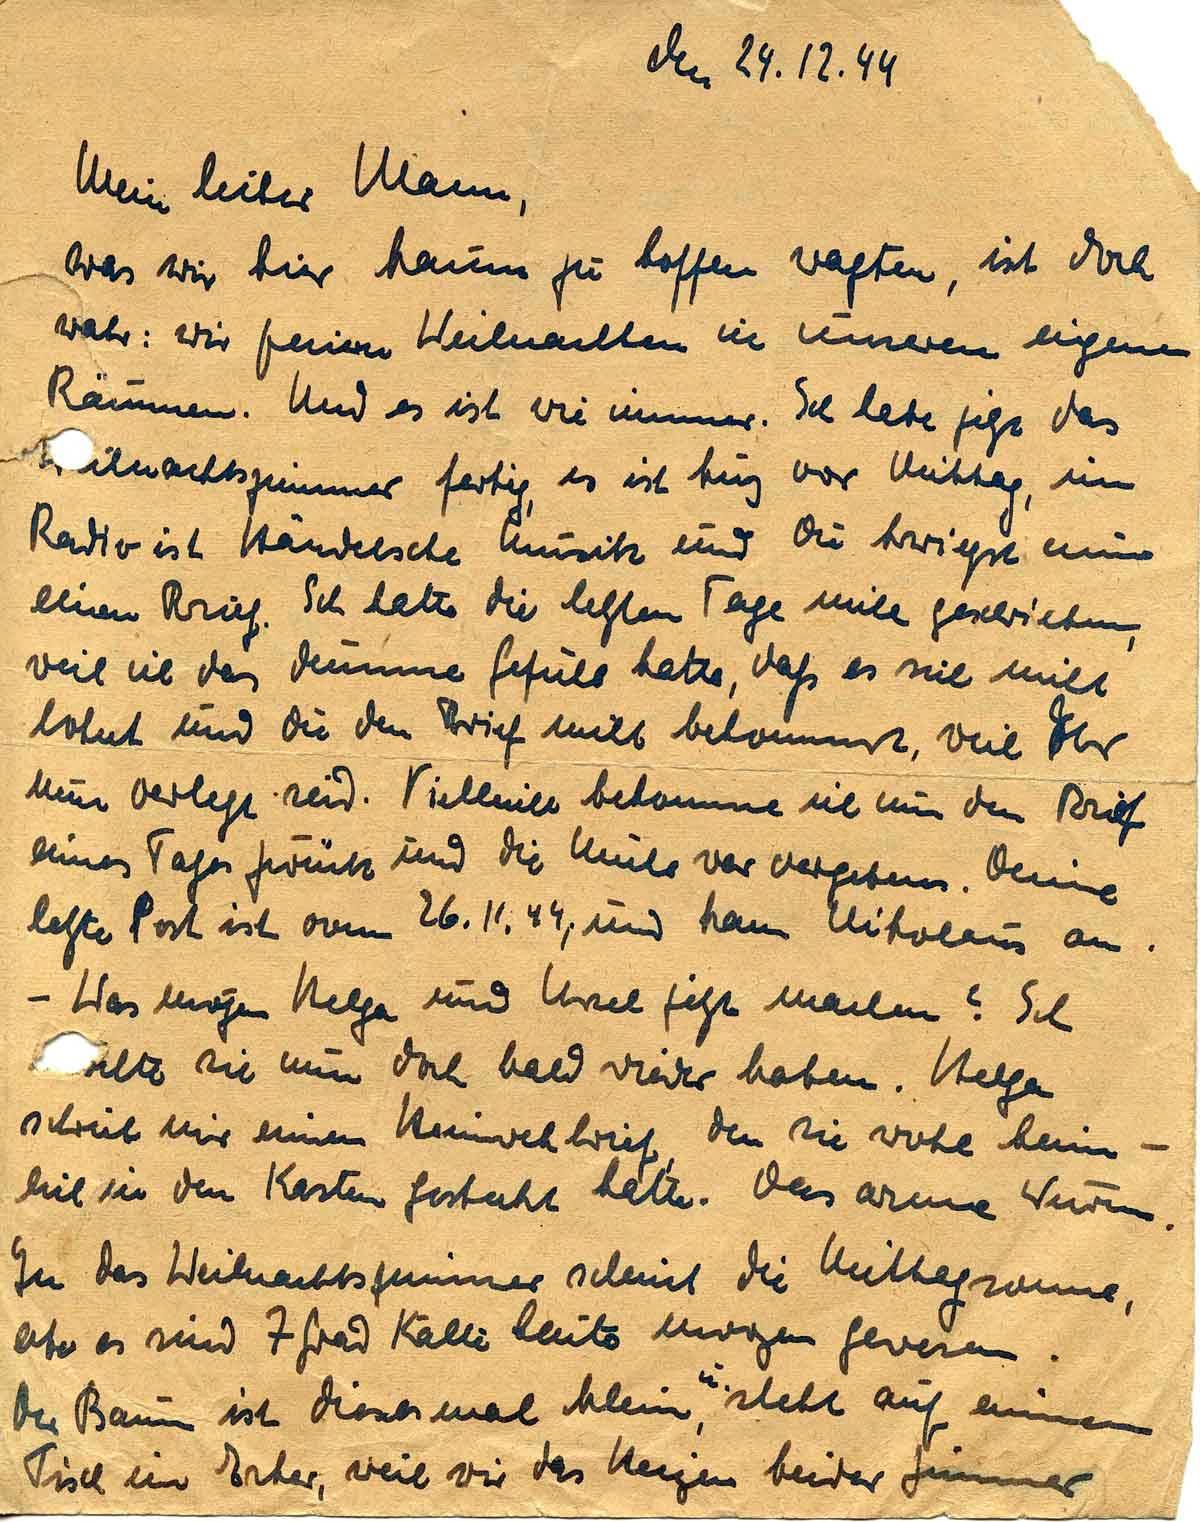 den 24.12.44
Mein lieber Mann,
was wir hier kaum zu hoffen wagten, ist doch
wahr: wir feiern Weihnachten in unseren eigenen
Räumen. Und es ist wie immer. Ich habe jetzt das
Weihnachtszimmer fertig, es ist kurz vor Mittag, im
Radio ist Händelsche Musik und Du kriegst nun
einen Brief. Ich hatte die letzten Tage nicht geschrieben,
weil ich das dumme Gefühl hatte, daß es sich nicht
lohnt und Du den Brief nicht bekommst, weil Ihr
nun verlegt seid. Vielleicht bekomme ich nun den Brief
eines Tages zurück und die Mühe war vergebens. Deine
letzte Post ist vom 26.11.44, und kam Nikolaus an.
- Was mögen Helga und Ursel jetzt machen? Ich
möchte sie nun doch bald wieder haben. Helga
schrieb mir einen Heimwehbrief, den sie wohl heim-
lich in den Kasten gesteckt hatte. Das arme Wurm.
In das Weihnachtszimmer scheint die Mittagsonne,
aber es sind 7 Grad Kälte heute morgen gewesen.
Der Baum ist diesesmal klein, u. steht auf einem
Tisch im Erker, weil wir das Heizen beider Zimmer